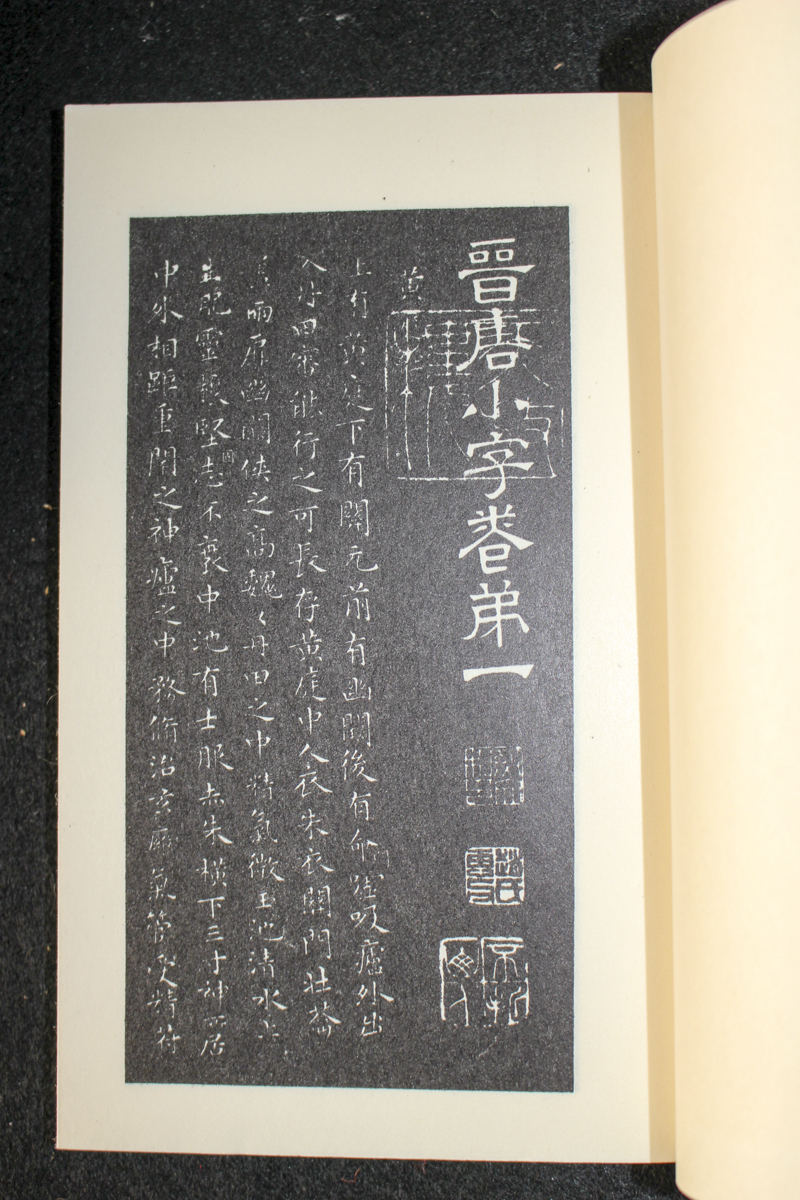 晉唐小字卷弟一
黃庭經
上有黃庭下有關元前有幽闕後有命噓吸廬外出
入丹田審能行之可長存黃庭中人衣朱衣關門壯蘥
蓋兩扉幽闕俠之高魏々丹田之中精氣微玉池清水上
生肥靈根堅固志不衰中池有士服赤朱橫下三寸神所居
中外相距重閉之神廬之中務脩治玄膺氣管受精符